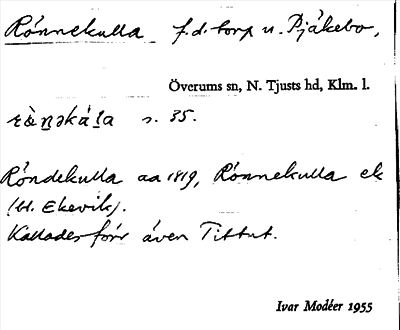 Rönnekulla f.d. torp u. Pjäkebo,
Överums sn, N. Tjusts hd, Klm. l.
s. 35.
Röndekulla aa 1819, Rönnekulla ek
(U. Ekevik).
Kallades förr även Tittut.
Ivar Modéer 1955